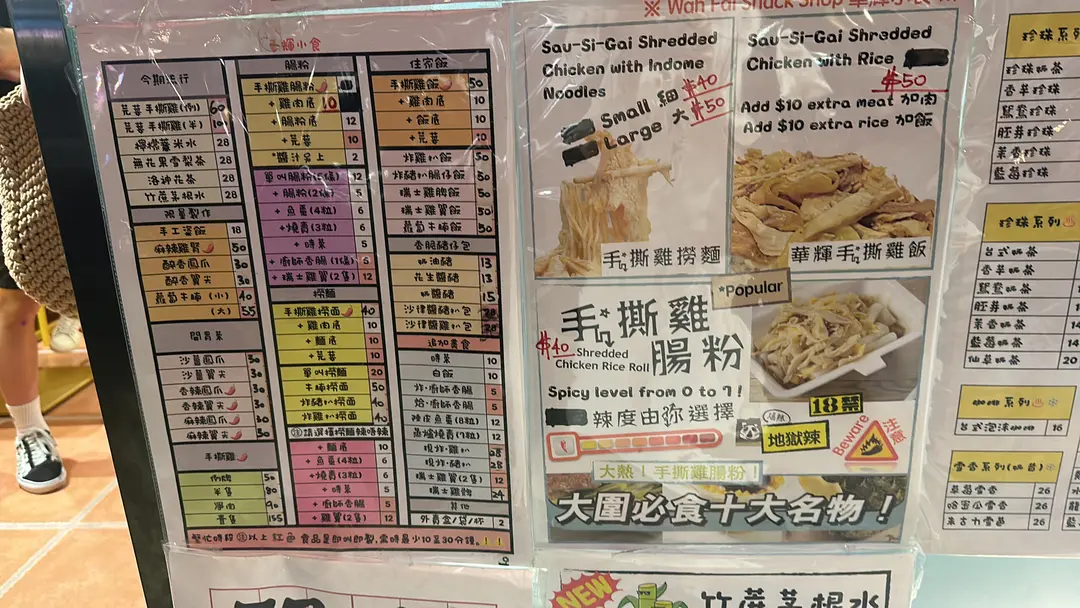 ※ Wah Fai Snack Shop
華輝小食
今期流行
芫荽手撕雞(例) 60
芫荽手撕雞(半)
檸檬薏米水 28
無花果雪梨茶 28
洛神花茶 28
竹蔗茅根水 28
限量製作
手工婆飯 18
麻辣雞腎 50
醉香鳳爪 30
醉香翼尖 30
蘿蔔牛腩 (小) 40
(大) 55
開胃菜
沙薑鳳爪 30
沙薑翼尖 30
香辣鳳爪 30
香辣翼尖 30
麻辣鳳爪 30
麻辣翼尖 30
手撕雞
半隻 80
淨肉 90
壹隻 155
腸粉
手撕雞腸粉
+ 雞肉底 10
+ 腸粉底 12
+ 芫荽 10
*醬汁另上 2
單叫腸粉(5條) 12
+ 腸粉(2條) 5
+ 魚蛋(4粒) 6
+ 燒賣(3粒) 6
+ 時菜 5
+ 廚師香腸 (1條) 5
+ 瑞士雞翼(2隻) 12
撈麵
手撕雞撈麵 40
+ 雞肉底 10
+ 麵底 10
+ 芫荽 10
單叫撈麵 20
牛腩撈麵 50
炸豬扒撈麵 40
炸雞扒撈麵 40
請選擇撈麵辣唔辣
+ 麵底 10
+ 魚蛋(4粒) 6
+ 燒賣(3粒) 6
+ 時菜 5
+ 廚師香腸 5
+ 雞翼(2隻) 12
住家飯
手撕雞飯 50
+ 雞肉底 10
+ 飯底 10
+ 芫荽 10
炸雞扒飯 50
炸豬扒腸仔飯 50
瑞士雞髀飯 50
瑞士雞翼飯 50
蘿蔔牛腩飯 50
香脆豬仔包
奶油豬 13
花生醬豬 13
奶醬豬 15
沙律豬扒包 28
沙律雞扒包 28
追加美食
時菜 10
白飯 10
炸·廚師香腸 5
烚·廚師香腸 5
辣皮魚蛋(8粒) 12
蒸爐燒賣(7粒) 12
現炸·雞扒 28
現炸·豬扒 28
瑞士雞翼(2隻) 12
瑞士雞髀 24
其他
外賣盒/袋/杯 2
繁忙時段 以上 紅色 食品是即叫即製,需時最少10至30分鐘。!!
Sau-Si-Gai Shredded
Chicken with Indome
Noodles
$40
Small 細 $50
Large 大
手撕雞撈麵
Sau-Si-Gai Shredded
Chicken with Rice
$50
Add $10 extra meat 加肉
Add $10 extra rice 加飯
華輝手撕雞飯
*Popular
手撕雞
腸粉
$40
Shredded
Chicken Rice Roll
Spicy level from 0 to 7!
辣度由你選擇
18禁
地獄辣
Beware
注意
大熱!手撕雞腸粉!
大圍必食十大名物!
珍珠系列
珍珠奶茶
香草珍珠
鴛鴦珍珠
胚芽珍珠
茉香珍珠
藍莓珍珠
珍珠系列
台式奶茶
香草奶茶
鴛鴦奶茶
胚芽奶茶
茉香奶茶
藍莓奶茶
仙草奶茶 20
咖啡系列
台式泡沫咖啡 16
雪香系列(奶昔)
草莓雪香 26
哈密瓜雪香 26
朱古力雪香 26
NEW
竹蔗茅根水